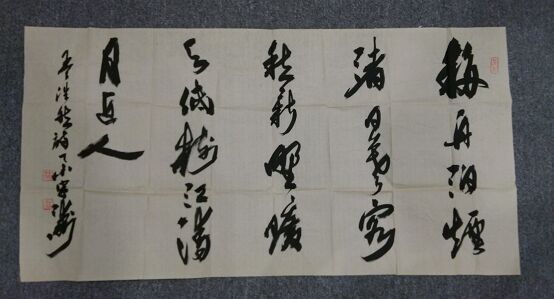 移舟泊煙
渚日暮客
愁新野曠
天低樹江清
月近人
孟浩然詩